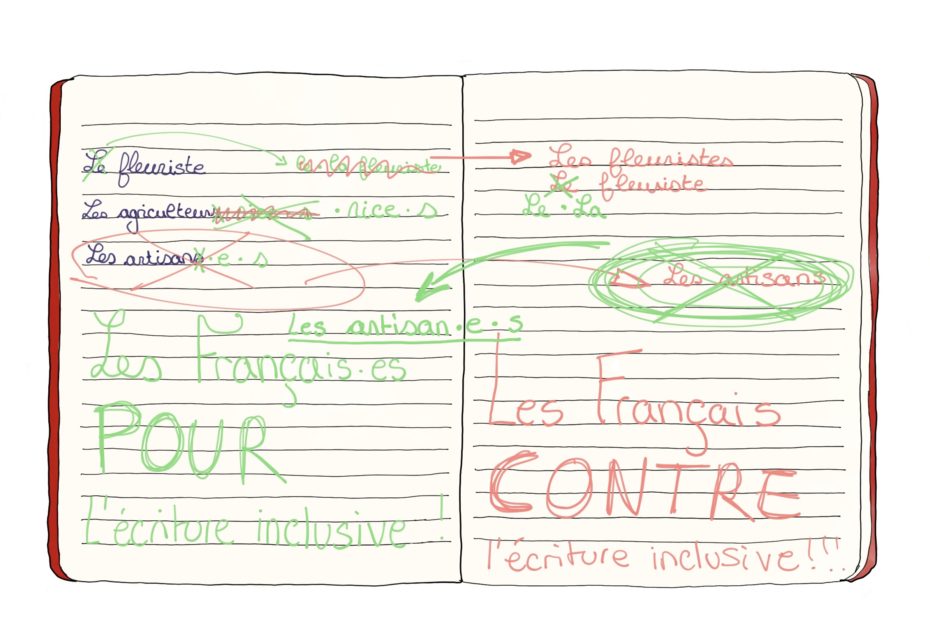 Le fleuriste
Les agiculteurs ·rice·s
Les artisans·e·s
Les artisan·e·s
Les Français·es
POUR
L'écriture inclusive !
Les fleuristes
Le fleuriste
Le·La
Les artisans
Les Français
CONTRE
l'écriture inclusive!!!